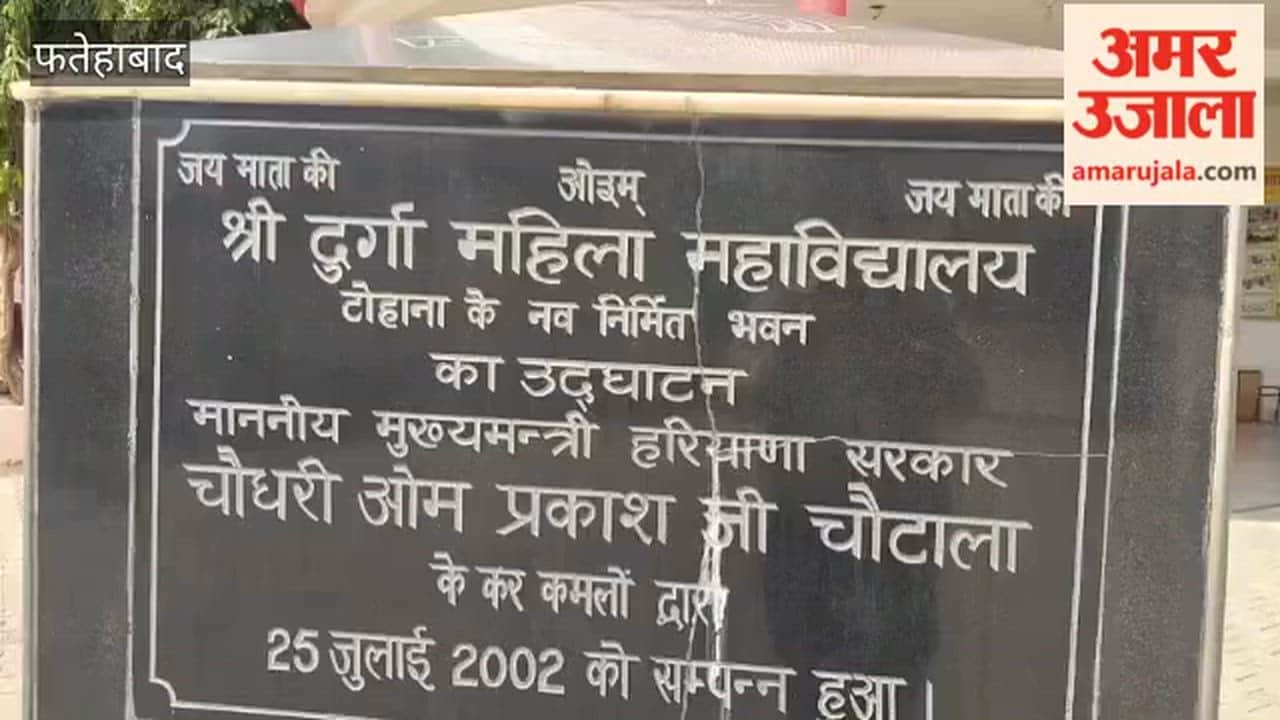 फतेहाबाद
अमर
उजाला
amarujala.com
जय माता की ओइम् जय माता की
श्री दुर्गा महिला महाविद्यालय
टोहाना के नव निर्मित भवन
का उद्घाटन
माननीय मुख्यमन्त्री हरियाणा सरकार
चौधरी ओम प्रकाश जी चौटाला
के कर कमलों द्वारा
25 जुलाई 2002 को सम्पन्न हुआ।